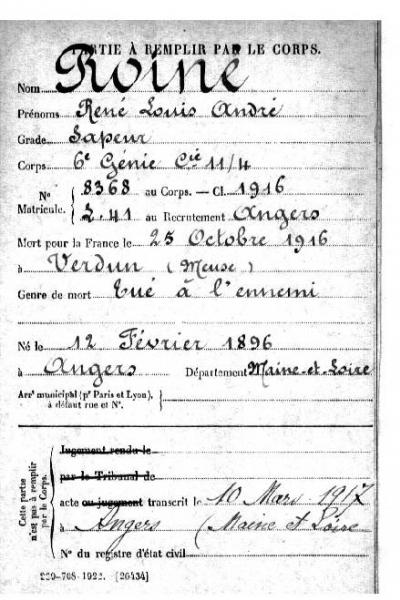 PARTIE À REMPLIR PAR LE CORPS.
Nom Roine
Prénoms René Louis André
Grade Sapeur
Corps 6e Génie Cie 11/4
No Matricule. { 8368 au Corps. — Cl. 1916
2.41 au Recrutement Angers
Mort pour la France le 25 Octobre 1916
à Verdun (Meuse)
Genre de mort Tué à l'ennemi
Né le 12 Février 1896
à Angers Département Maine-et-Loire
Arrt municipal (pr Paris et Lyon),
à défaut rue et No.
Cette partie n'est pas à remplir par le Corps.
Jugement rendu le
par le Tribunal de
acte ou jugement transcrit le 10 Mars 1917
à Angers (Maine et Loire
No du registre d'état civil
[26434]